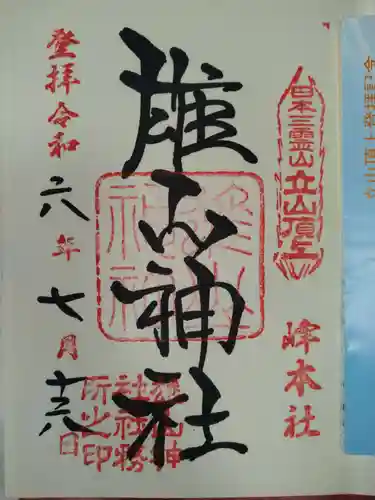 日本三霊山立山頂上
峰本社
雄山神社
雄山神社
雄山神
社社務
所之印
登拝令和六年七月十六日